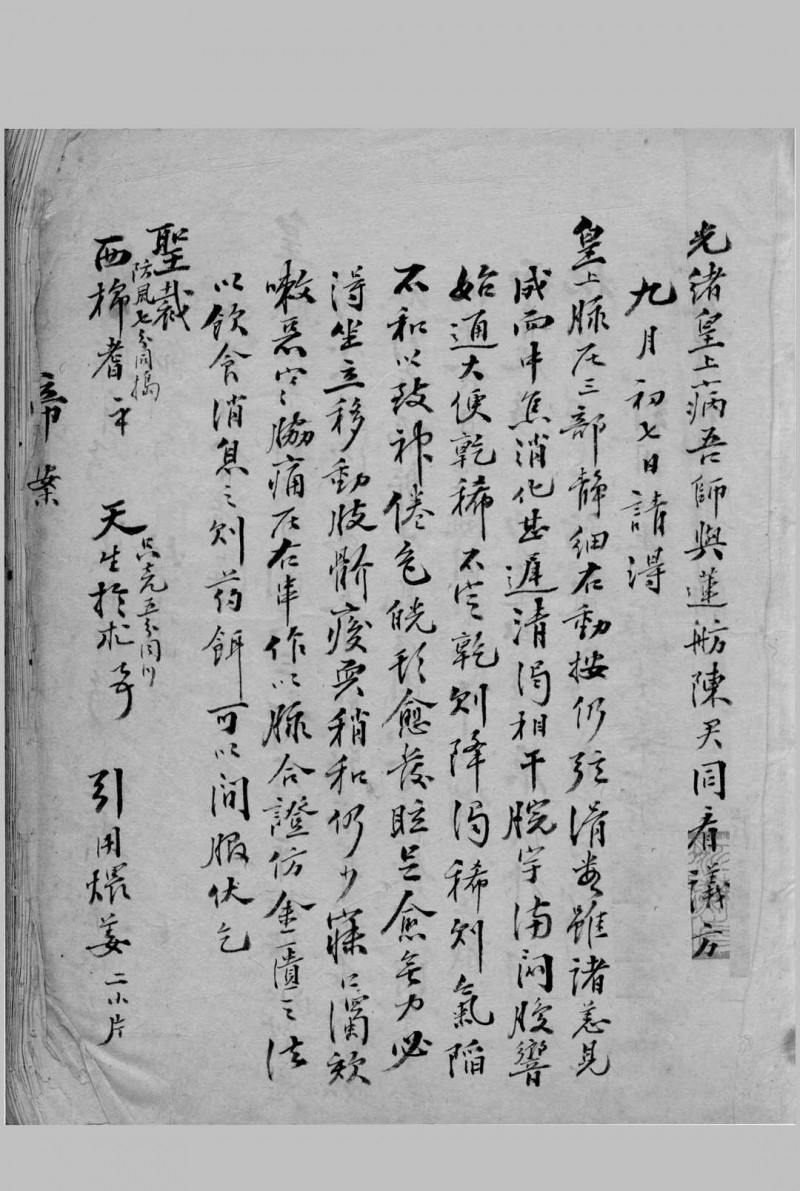 光绪皇上病吾師與蓮舫陳君同看議方
九月初七日請得
皇上脉左三部靜細右動按仍弦滑數雖諸恙見
減而中焦消化甚遲清濁相干脘宇滿悶腹響
始通大便乾稀不定乾則降濁稀則氣陷
不和以致神倦色㿠頭愈發眩足愈無力必
得坐立移動肢骱痠耎稍和仍少寐口瀾欬
嗽惡寒脇痛左右串作以脉合證仿金匱之法
以飲食消息之則药餌可以间服伏乞
聖裁
西棉耆 防風七分同搗
天生於朮 只壳五分同炒
引用煨姜二小片
帝案